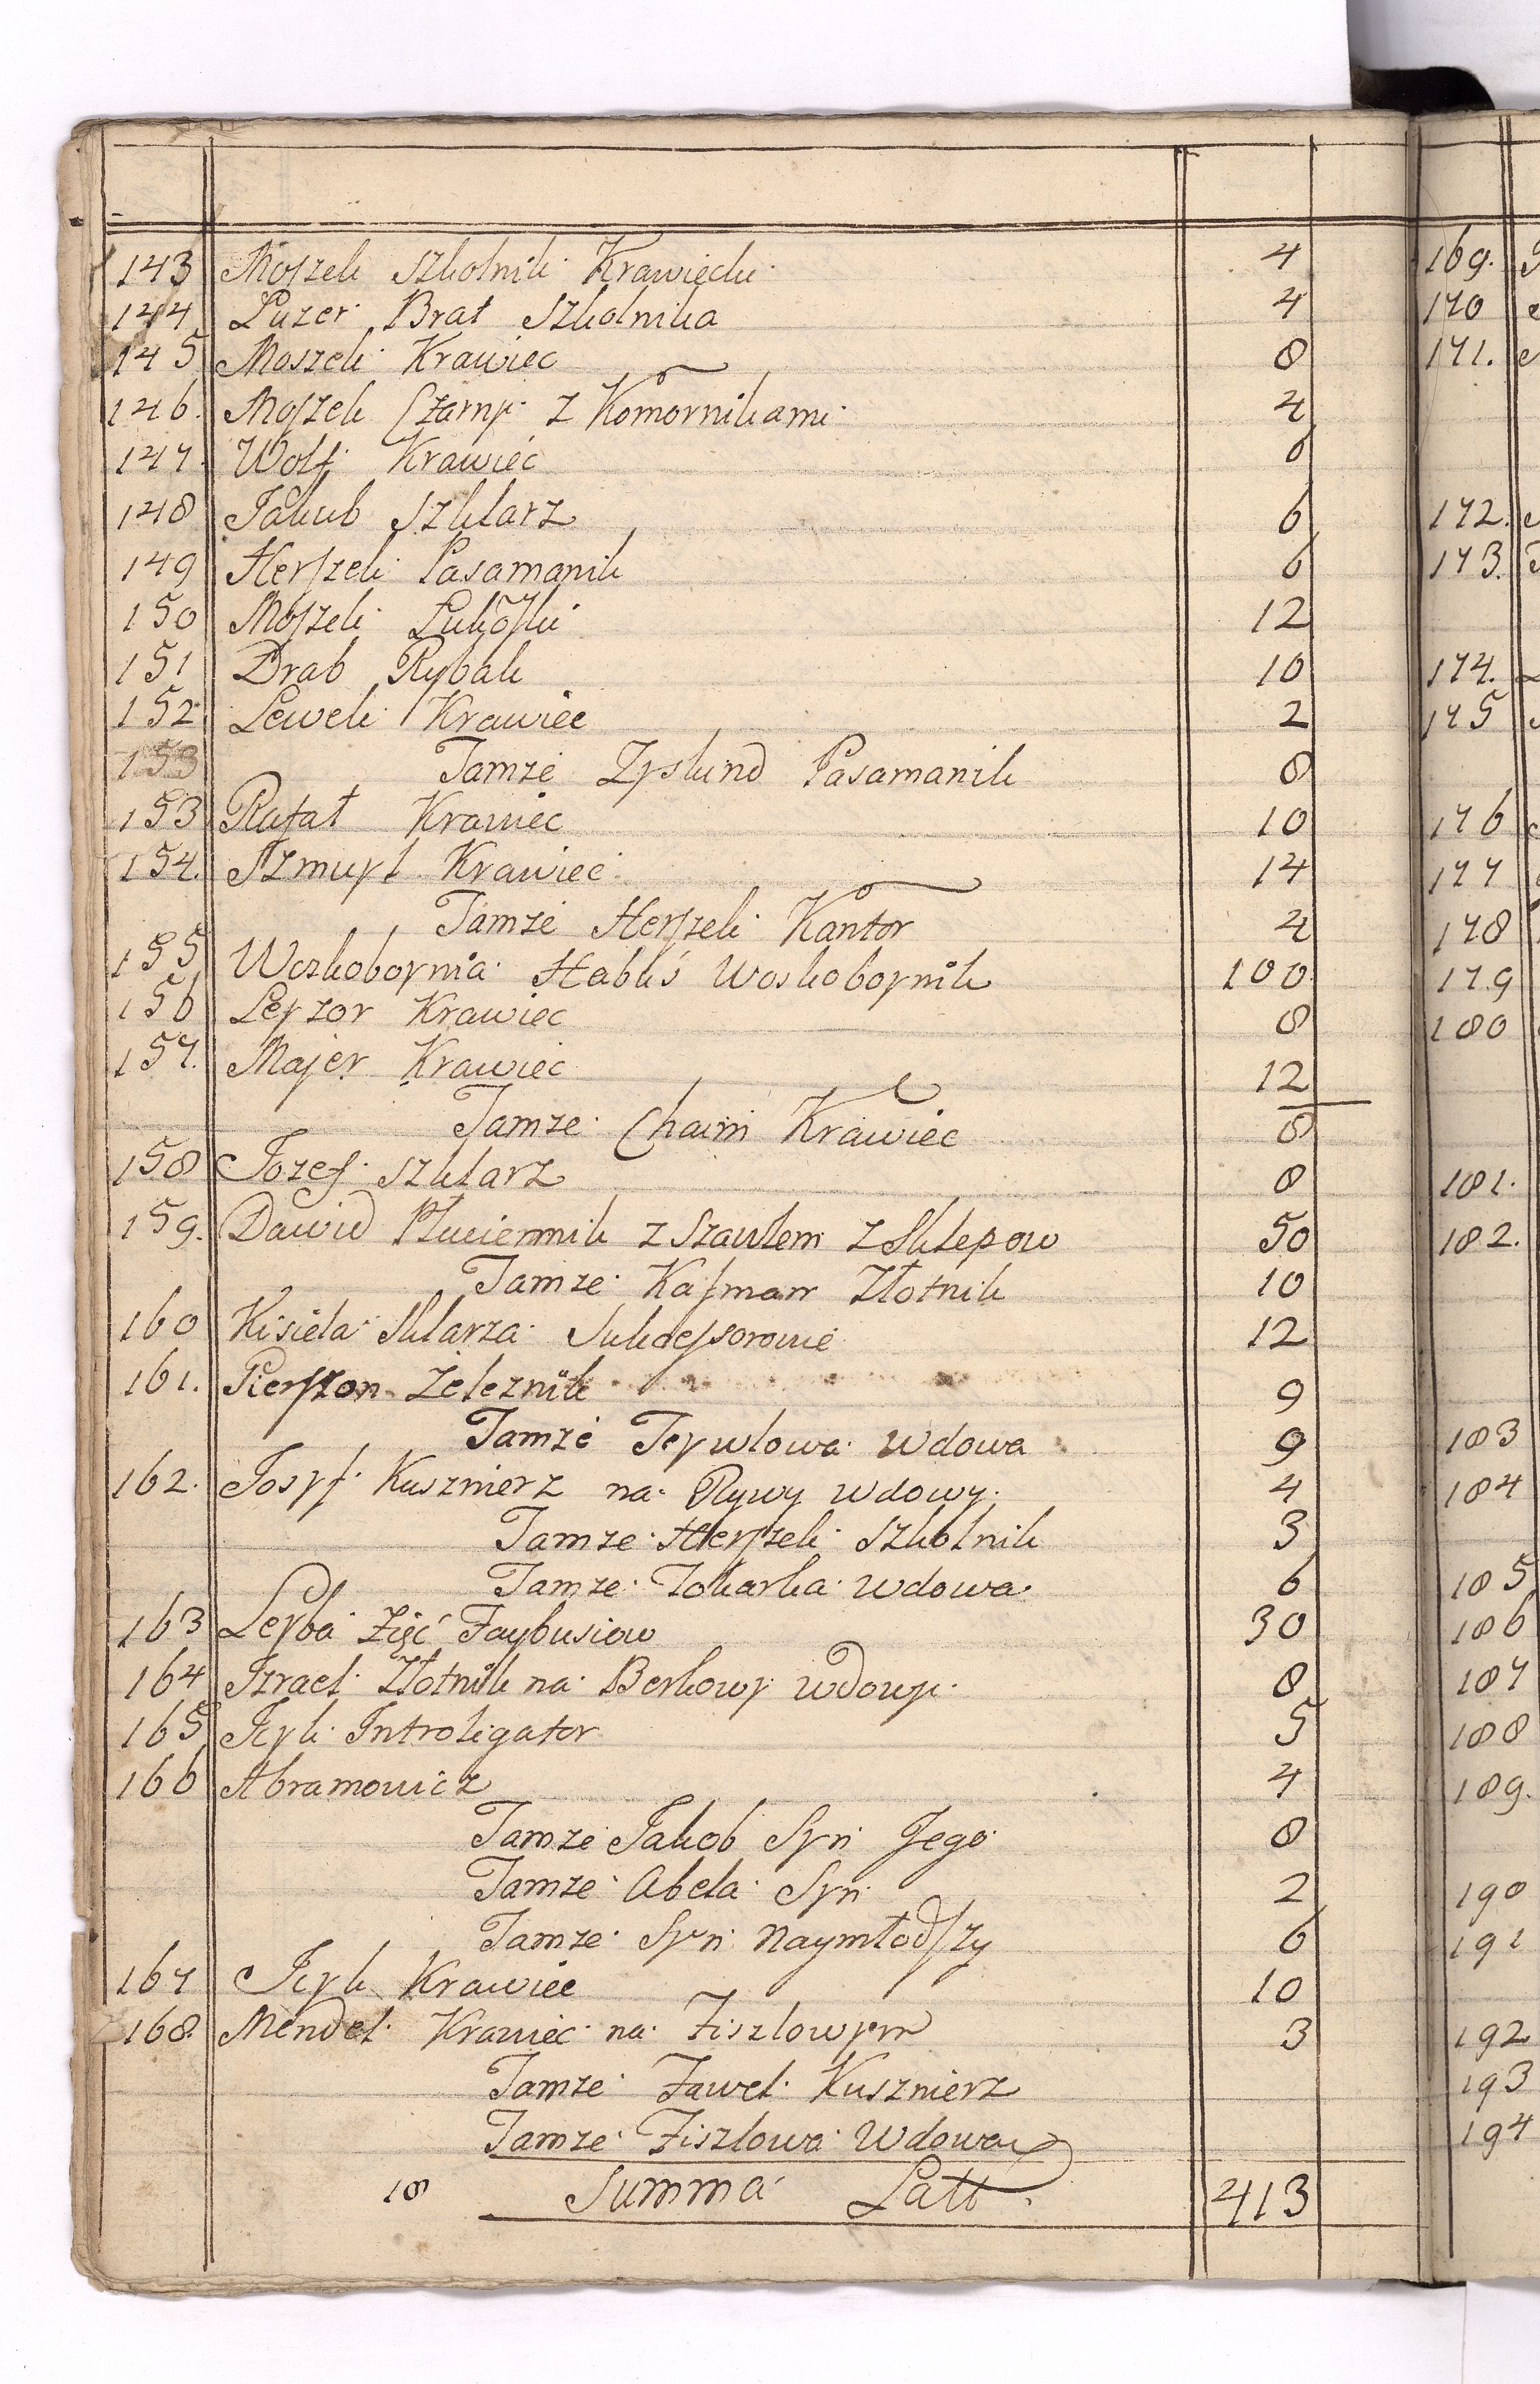 143 Moszek Szkolnik Krawiecki 4
144 Luzer Brat Szkolnika 4
145 Moszek Krawiec 8
146. Moszek Czarny z Komornikami 4
147. Wolf Krawiec 6
148 Jakub Szklarz 6
149 Herszek Pasamanik 6
150 Moszek 12
151 Drab Rybak 10
152. Lewek Krawiec 2
153 Tamze Zyskind Pasamanik 8
153 Rafał Krawiec 10
154. Szmuyl Krawiec 14
Tamze Herszek Kantor 4
155 Woskoboynia Habuś Woskoboynik 100
156 Leyzor Krawiec 8
157. Majer Krawiec 12
Tamze Chaim Krawiec 8
158 Jozef Szklarz 8
159. Dawid Płuciennik z Szawłem z Sklepow 50
Tamze Kasman Złotnik 10
160 Kisiela Sklarza Sukcessorowie 12
161. Pierszon Zeleznik 9
Tamze Teywlowa Wdowa 9
162. Josyf Kusznierz na Rywy wdowy 4
Tamze Herszek Szkolnik 3
Tamze Tokarka wdowa 6
163 Leyba Zięć Faybusiow 30
164 Izrael Złotnik na Berkowy wdowy 8
165 Icyk Introligator 5
166 Abramowicz 4
Tamze Jakob Syn Jego 8
Tamze Abela Syn 2
Tamze Syn Naymłodszy 6
167 Icyk Krawiec 10
168. Mendel Krawiec na Fiszlowym 3
Tamze Fawel Kusznierz
Tamze Fiszlowa Wdowa
18 Summa Latt 413
169.
170
171.
172.
173.
174.
175
176
177
178
179
180
181.
182.
183
184
185
186
187
188
189.
190
191
192
193
194